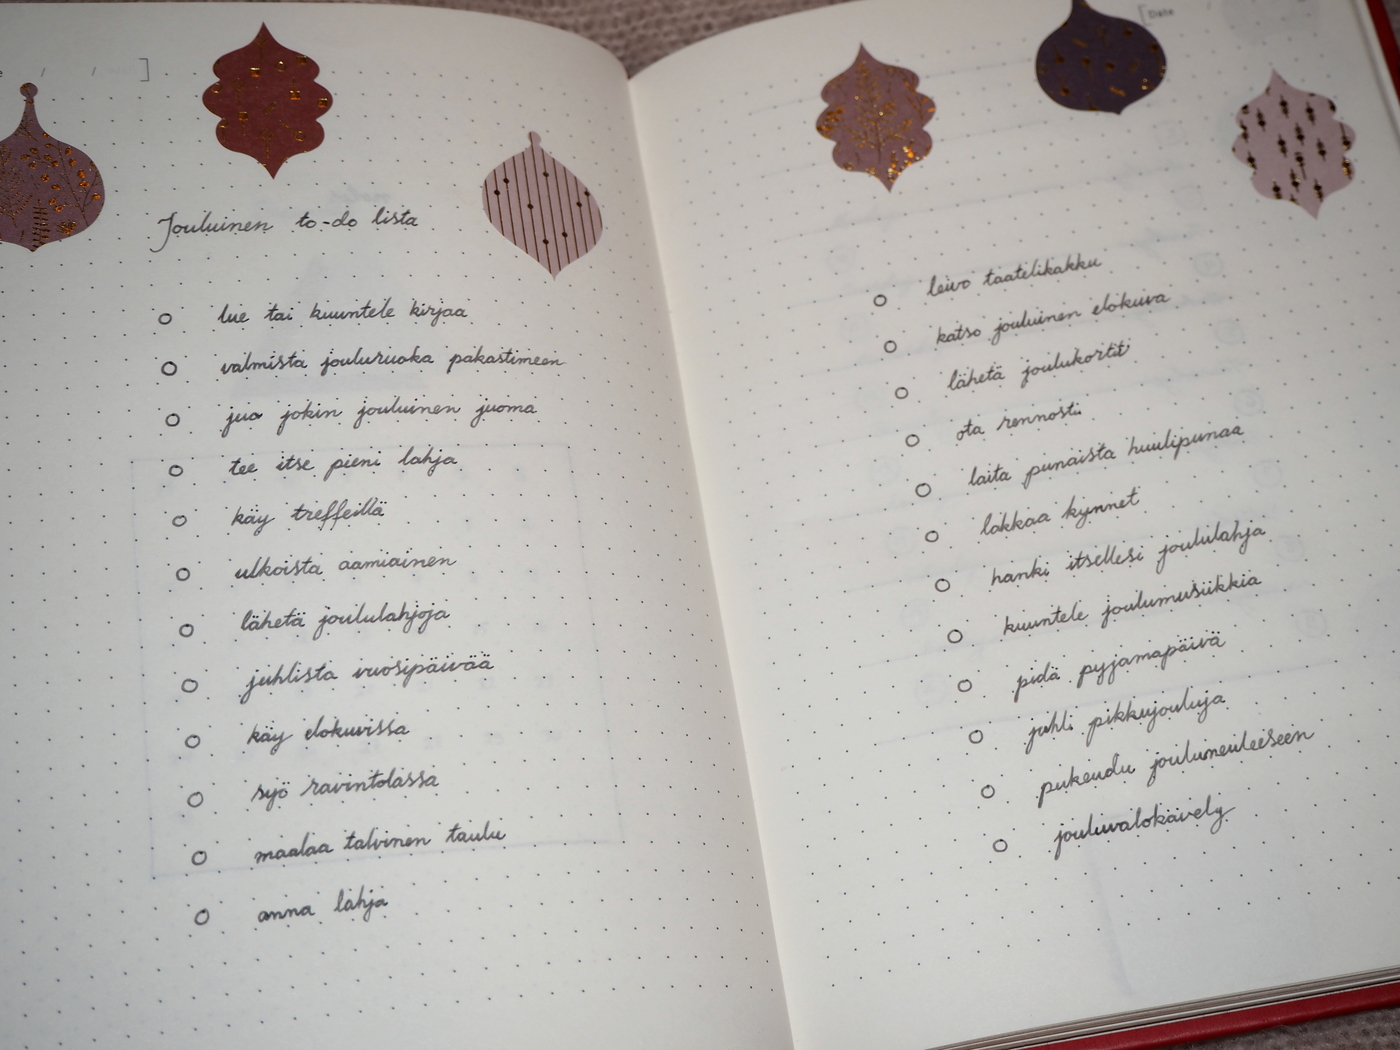 / / ]
Jouluinen to-do lista
lue tai kuuntele kirjaa
valmista jouluruoka pakastimeen
juo jokin jouluinen juoma
tee itse pieni lahja
käy treffeillä
ulkoista aamiainen
lähetä joululahjoja
juhlista vuosipäivää
käy elokuvissa
syö ravintolassa
maalaa talvinen taulu
anna lahja
[Date /
leivo taatelikakku
katso jouluinen elokuva
lähetä joulukortit
ota rennosti
laita punaista huulipunaa
lakkaa kynnet
hanki itsellesi joululahja
kuuntele joulumusiikkia
pidä pyjamapäivä
juhli pikkujouluja
pukeudu jouluneuleeseen
jouluvalokävely